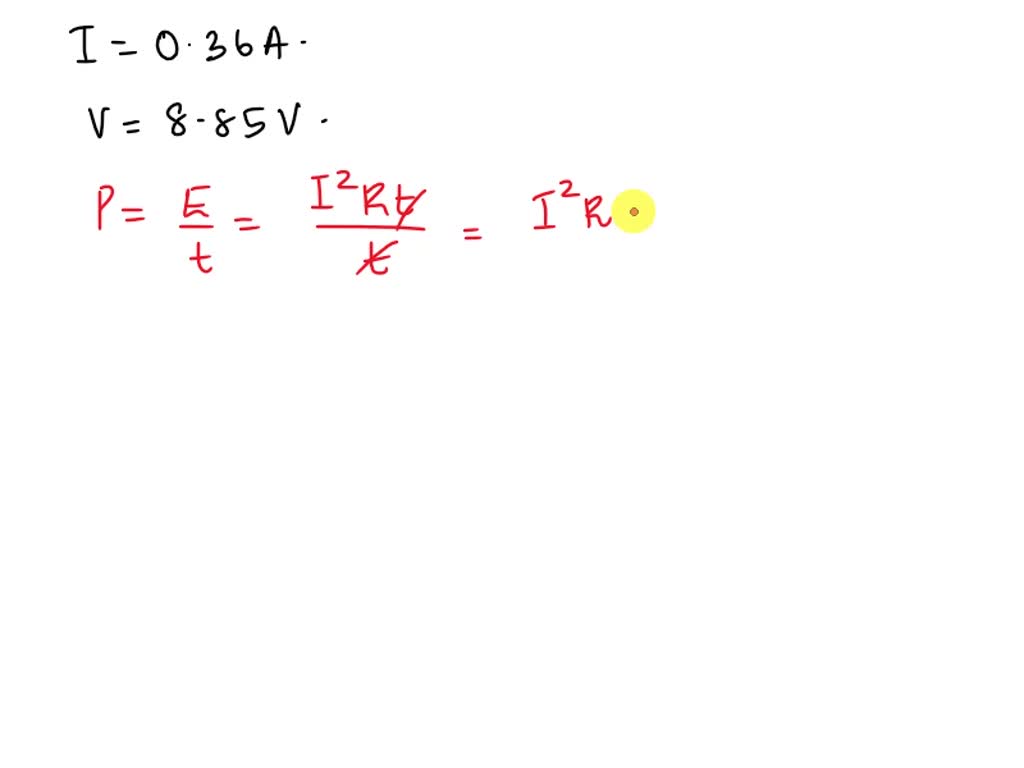 I = 0.36A.
V = 8.85V.
P = E/t = I²Rt/t = I²R